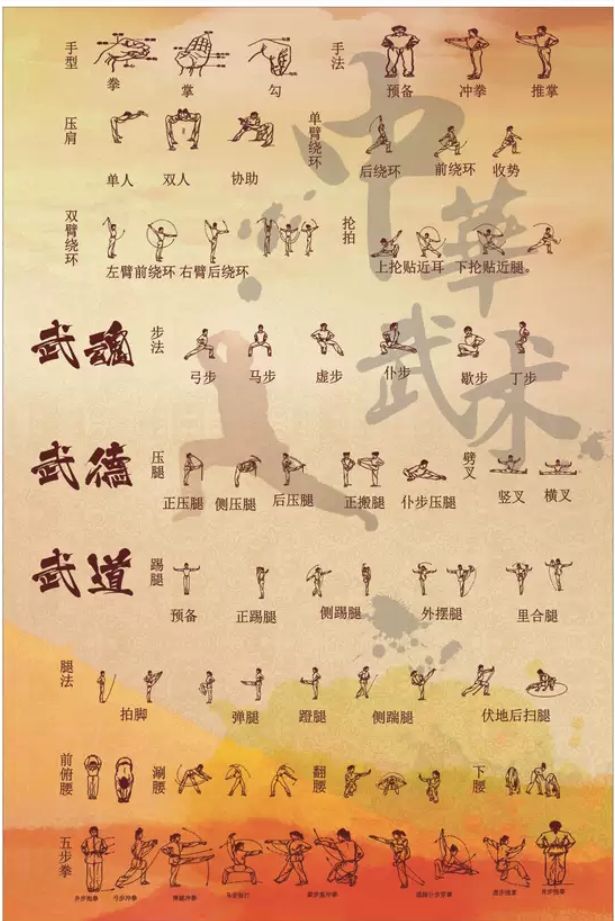 手型
拳 掌 勾
手法
预备 冲拳 推掌
压肩
单人 双人 协助
单臂绕环
后绕环 前绕环 收势
双臂绕环
左臂前绕环 右臂后绕环
抡拍
上抡贴近耳 下抡贴近腿。
中華武术
武魂
步法
弓步 马步 虚步 仆步 歇步 丁步
武德
压腿
正压腿 侧压腿 后压腿 正搬腿 仆步压腿
劈叉
竖叉 横叉
武道
踢腿
预备 正踢腿 侧踢腿 外摆腿 里合腿
腿法
拍脚 弹腿 蹬腿 侧踹腿 伏地后扫腿
前俯腰
涮腰
翻腰
下腰
五步拳
弓步冲拳